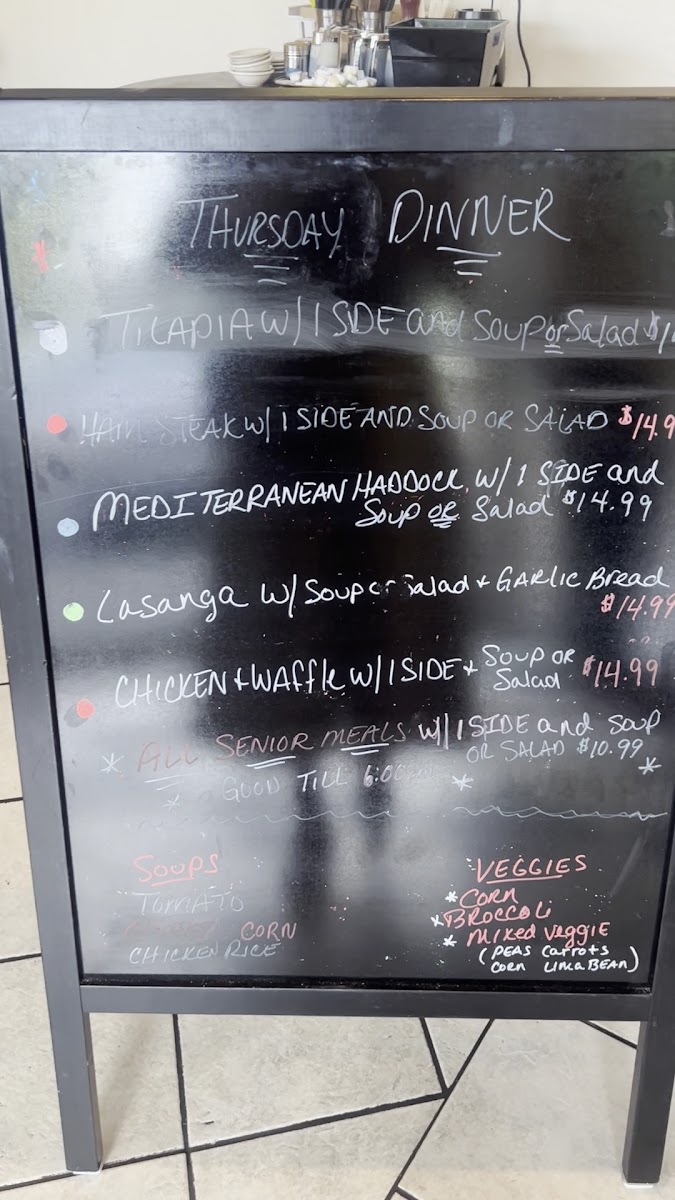 THURSDAY DINNER
TILAPIA W/ 1 SIDE and Soup or Salad $1
HAM STEAK W/ 1 SIDE AND SOUP OR SALAD $14.9
MEDITERRANEAN HADDOCK W/ 1 SIDE and
Soup OR Salad $14.99
Lasanga W/ Soup or Salad + GARLIC Bread
$14.99
CHICKEN + WAffle W/ 1 SIDE + SOUP OR
Salad $14.99
* ALL SENIOR MEALS W/ 1 SIDE and Soup
OR SALAD $10.99 *
* GOOD TILL 6:00 *
Soups
TOMATO
CORN
CHICKEN RICE
VEGGIES
* CORN
* BROCCOLi
* Mixed VeggiE
(PEAS Carrots
CORN LIMA BEAN)